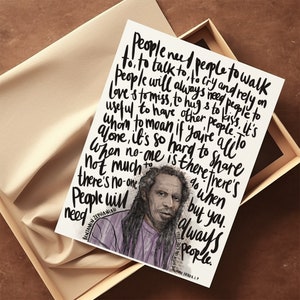 People need people to walk
to, to talk to, to cry and rely on
People will always need people to
love & to miss, to hug & to kiss. it's
useful to have other people to
whom to moan if you're all
alone, it's so hard to share
when no-one is there. there's
not much to do, when
there's no-one but you.
People will always
need people.
BENJAMIN ZEPHANIAH